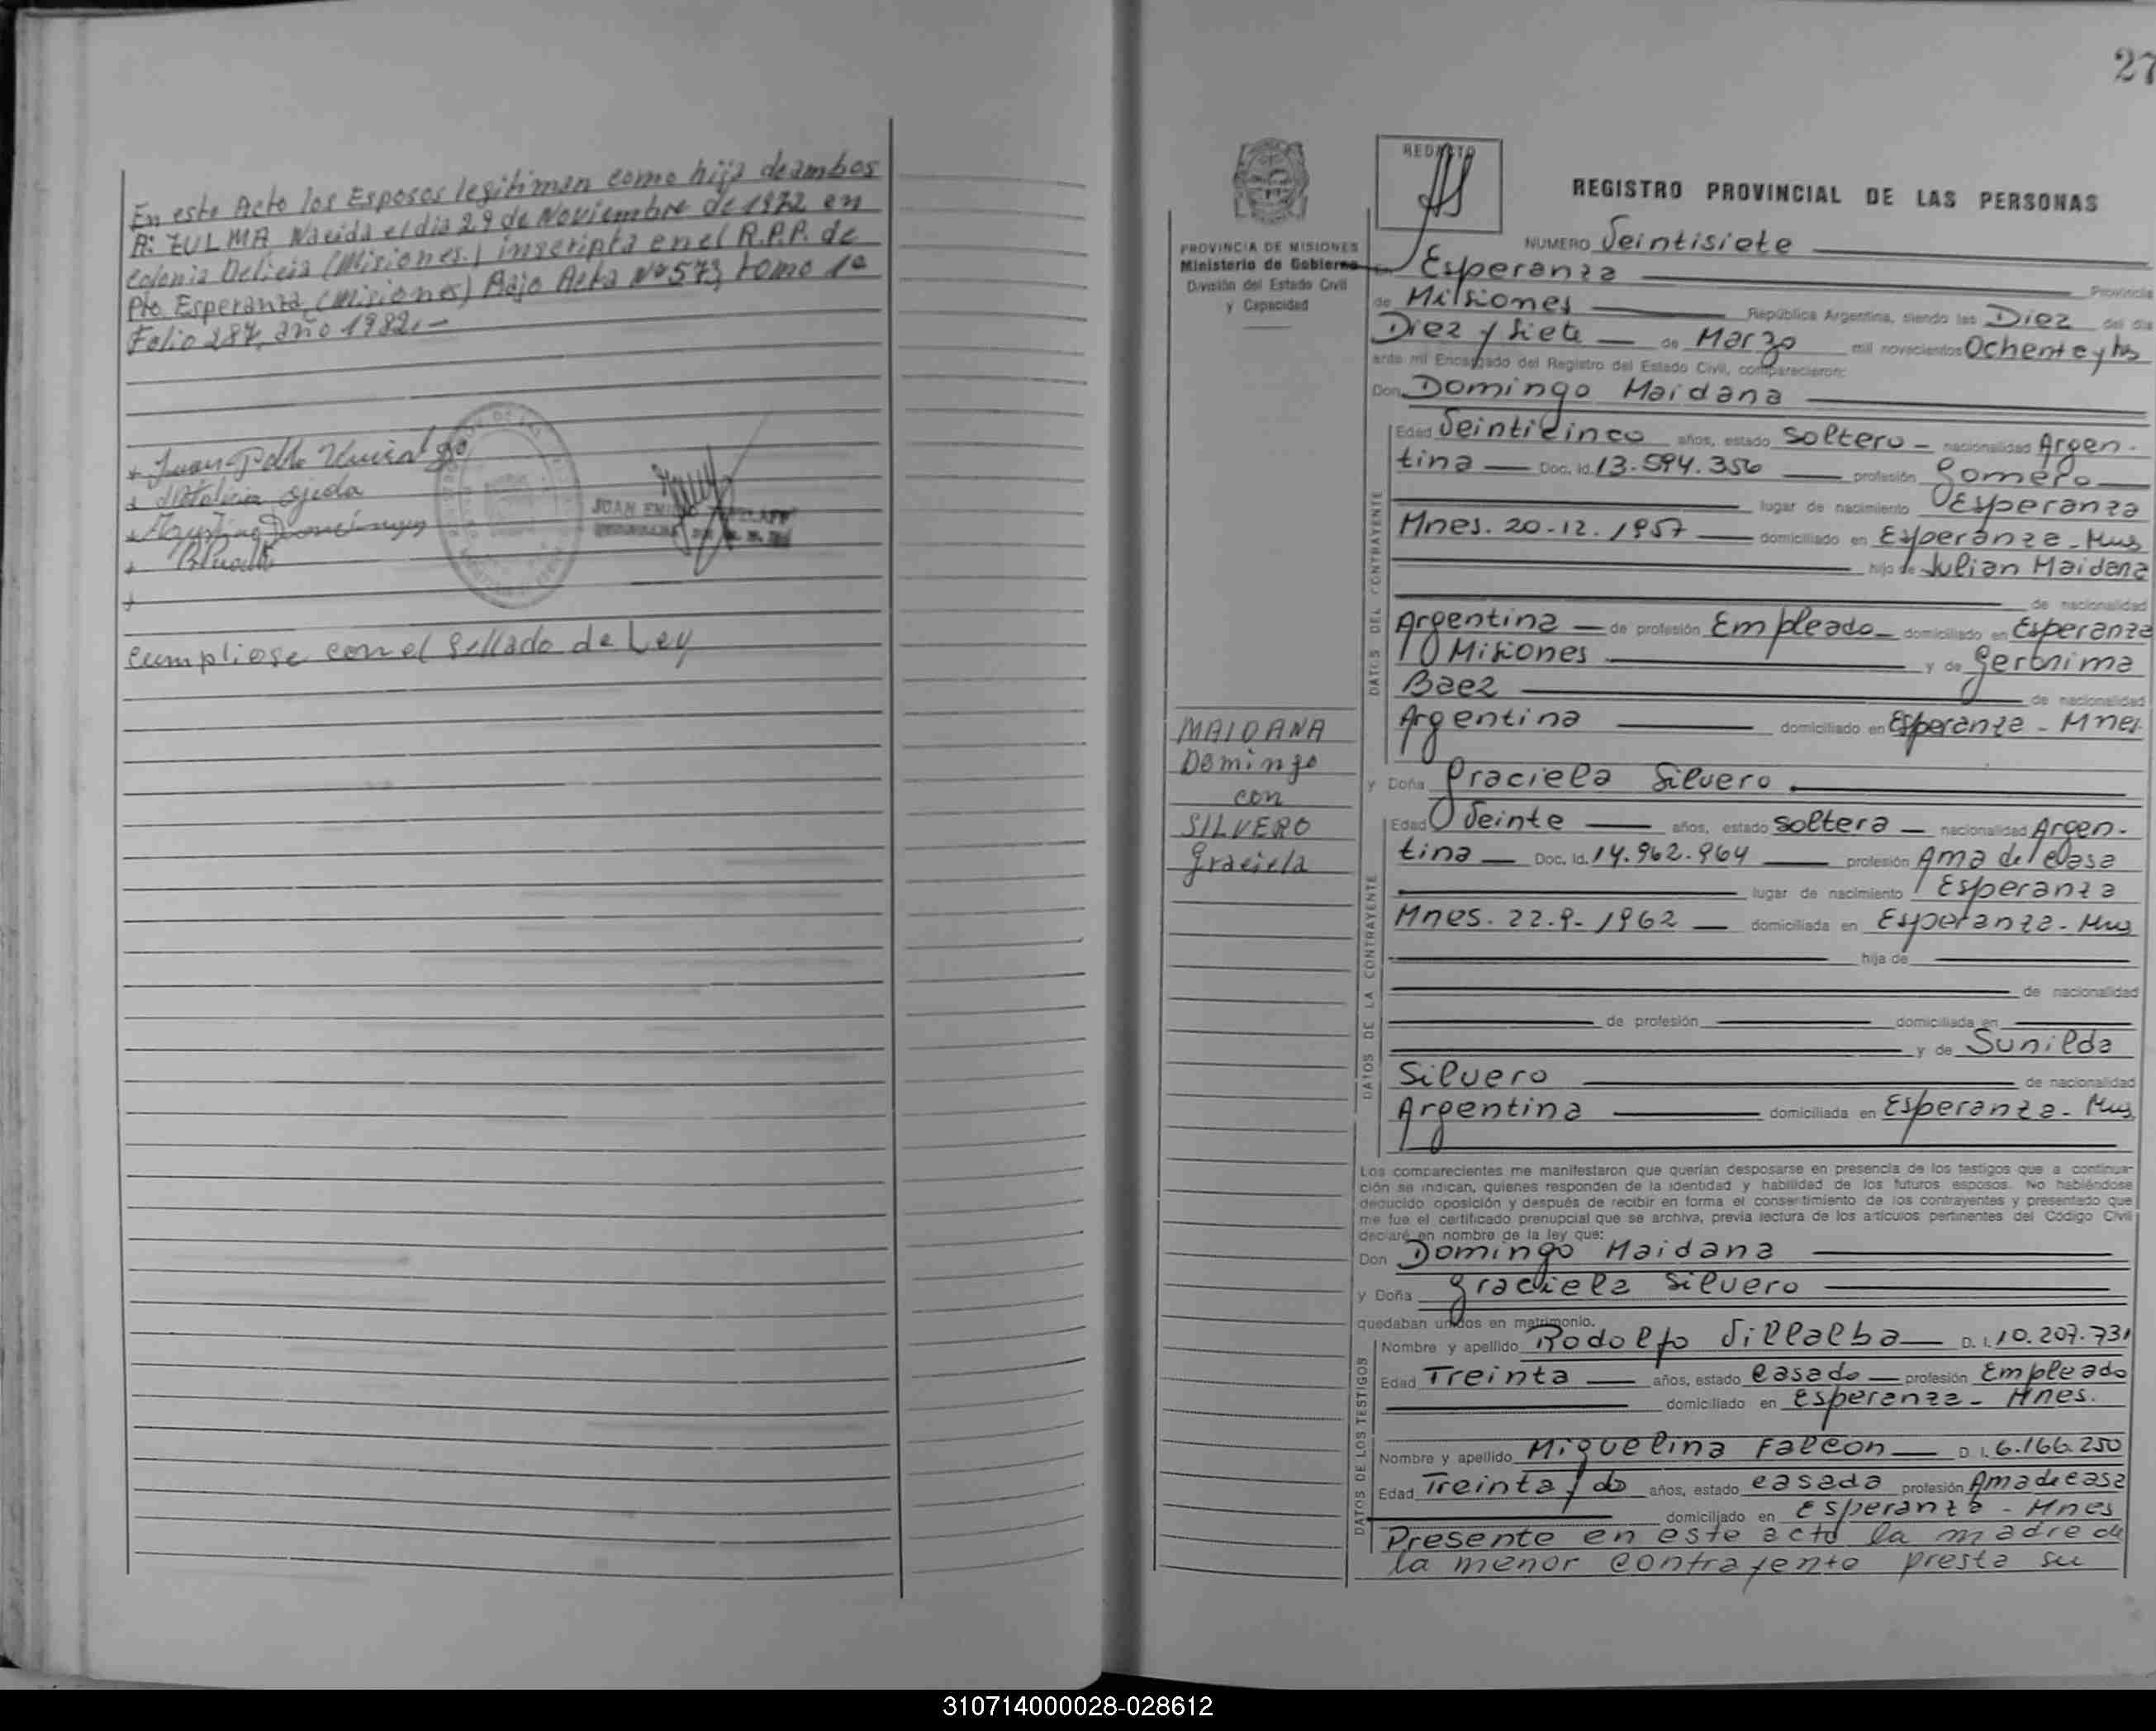 En este Acto los Esposos legitiman como hija de ambos
A: ZULMA Nacida el dia 29 de Noviembre de 1972 en
Colonia Delicia (Misiones.) inscripta en el R.P.P. de
Pto. Esperanza, (Misiones) Bajo Acta Nº 573 tomo 1º
Folio 287, año 1982.-
Ojeda
JUAN
Cumpliose con el Sellado de Ley
27
REDACTO
REGISTRO PROVINCIAL DE LAS PERSONAS
PROVINCIA DE MISIONES
Ministerio de Gobierno
División del Estado Civil
y Capacidad
NUMERO Veintisiete
Esperanza
Provincia
de Misiones República Argentina, siendo las Diez del dia
Diez y siete de Marzo mil novecientos Ochenta y tres
ante mi Encargado del Registro del Estado Civil, comparecieron:
Don Domingo Maidana
DATOS DEL CONTRAYENTE
Edad Veinticinco años, estado soltero - nacionalidad Argen-
tina Doc. Id. 13.594.356 profesión Gomero
lugar de nacimiento Esperanza
Mnes. 20-12.1957 domiciliado en Esperanza - Mns
hijo de Julian Maidana
de nacionalidad
Argentina de profesión Empleado domiciliado en Esperanza
Misiones y de Geronima
Baez de nacionalidad
Argentina domiciliado en Esperanza - Mnes.
MAIDANA
Domingo
con
SILVERO
Graciela
y Doña Graciela Silvero
DATOS DE LA CONTRAYENTE
Edad Veinte años, estado soltera nacionalidad Argen-
tina Doc. Id. 14.962.964 profesión Ama de Casa
lugar de nacimiento Esperanza
Mnes. 22.9-1962 domiciliada en Esperanza - Mns
hija de
de nacionalidad
de profesión domiciliada en
y de Sunilda
Silvero de nacionalidad
Argentina domiciliada en Esperanza - Mns
Los comparecientes me manifestaron que querían desposarse en presencia de los testigos que a continua-
ción se indican, quienes responden de la identidad y habilidad de los futuros esposos. No habiéndose
deducido oposición y después de recibir en forma el consentimiento de los contrayentes y presentado que
me fue el certificado prenupcial que se archiva, previa lectura de los artículos pertinentes del Código Civil
declaré en nombre de la ley que:
Don Domingo Maidana
y Doña Graciela Silvero
quedaban unidos en matrimonio.
DATOS DE LOS TESTIGOS
Nombre y apellido Rodolfo Villalba D. I. 10.207.731
Edad Treinta años, estado Casado profesión Empleado
domiciliado en Esperanza - Mnes.
Nombre y apellido Miguelina Falcon D. I. 6.166.250
Edad Treinta y dos años, estado casada profesión Ama de casa
domiciliado en Esperanza - Mnes
Presente en este acto la madre de
la menor contrayente presta su
310714000028-028612